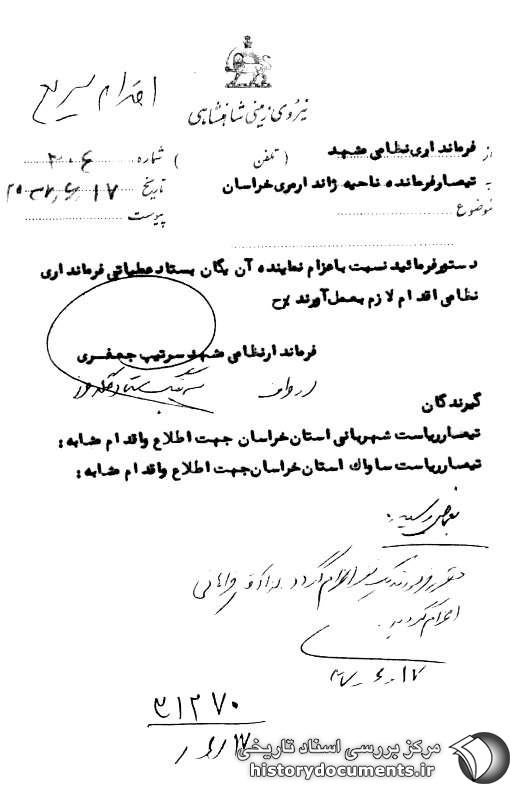 اقدام سریع
نیروی زمینی شاهنشاهی
از فرمانداری نظامی مشهد ( تلفن ) شماره ۲۰۶
به تیمسار فرمانده ناحیه ژاندارمری خراسان تاریخ ۲۵۳۷٫۶٫۱۷
موضوع پیوست
دستور فرمائید نسبت باعزام نماینده آن یگان بستاد عملیاتی فرمانداری
نظامی اقدام لازم بعمل آورند برح
فرماندار نظامی مشهد سرتیپ جعفری
از طرف
گیرندگان
تیمسار ریاست شهربانی استان خراسان جهت اطلاع و اقدام مشابه :
تیمسار ریاست ساواک استان خراسان جهت اطلاع و اقدام مشابه :
بعرض رسید
اعزام گردد
اعزام گردید.
۳۷٫۶٫۱۷
۳۱۲۷۰
۱۷/۶/
مرکز بررسی اسناد تاریخی
historydocuments.ir